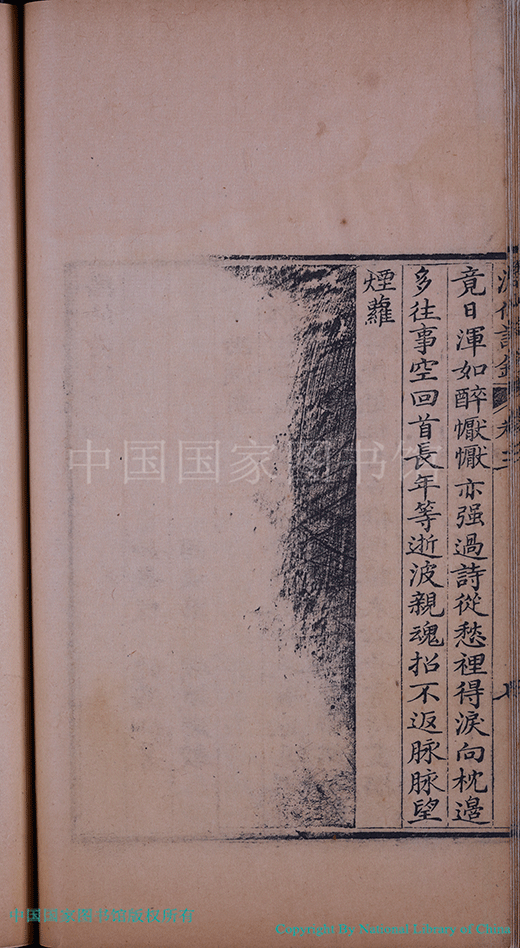 竟日渾如醉懨懨亦强過詩從愁裡得淚向枕邊
多往事空回首長年等逝波親魂招不返脉脉望
煙蘿
中国国家图书馆
中国国家图书馆版权所有
Copyright By National Library of China